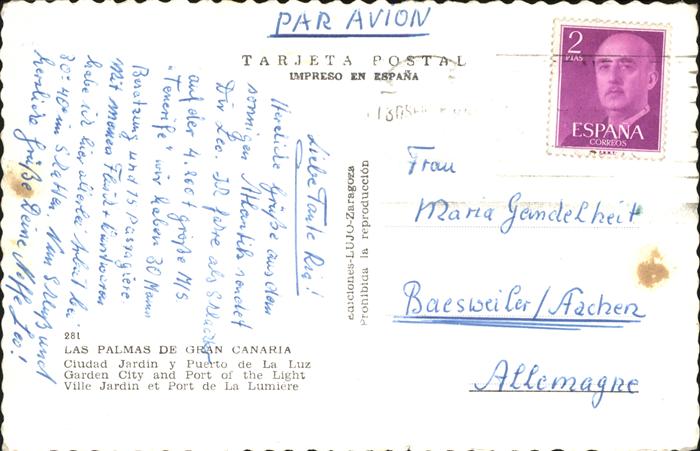 PAR AVION
TARJETA POSTAL
IMPRESO EN ESPAÑA
2
PTAS
ESPAÑA
CORREOS
Liebe Tante Ria!
Herzliche Grüße aus dem
sonnigen Atlantik sendet
Dir Leo. Ich fahre als
auf der 4.200 t große M/S
"Tenerife" wir haben 30 Mann
Besatzung und 75 Passagiere
Mit meinen
habe ich hier allerlei Arbeit bei
30°-40° im Schatten. Nun Schluß und
herzliche Grüße Deine Neffe Leo!
Frau
Maria Gendelheit
Baesweiler/Aachen
Allemagne
ediciones-LUJO-Zaragoza
Prohibida la reproducción
281
LAS PALMAS DE GRAN CANARIA
Ciudad Jardin y Puerto de La Luz
Garden City and Port of the Light
Ville Jardin et Port de La Lumiere